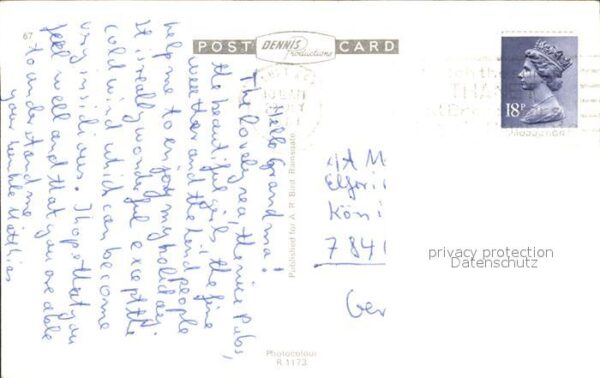 67
POST DENNIS Productions CARD
18P
Hello Grandma!
The lovely sea, the nice Pubs,
the beautiful girls, the fine
weather and the kind people
help me to enjoy my holiday.
It is really wonderful except the
cold wind which can become
very insidious. I hope that you
feel well and that you are able
to understand me
your humble Matthias
Published for A. R. Bird, Ramsgate
4t M
König
7840
Ger
privacy protection
Datenschutz
Photocolour
R 1173